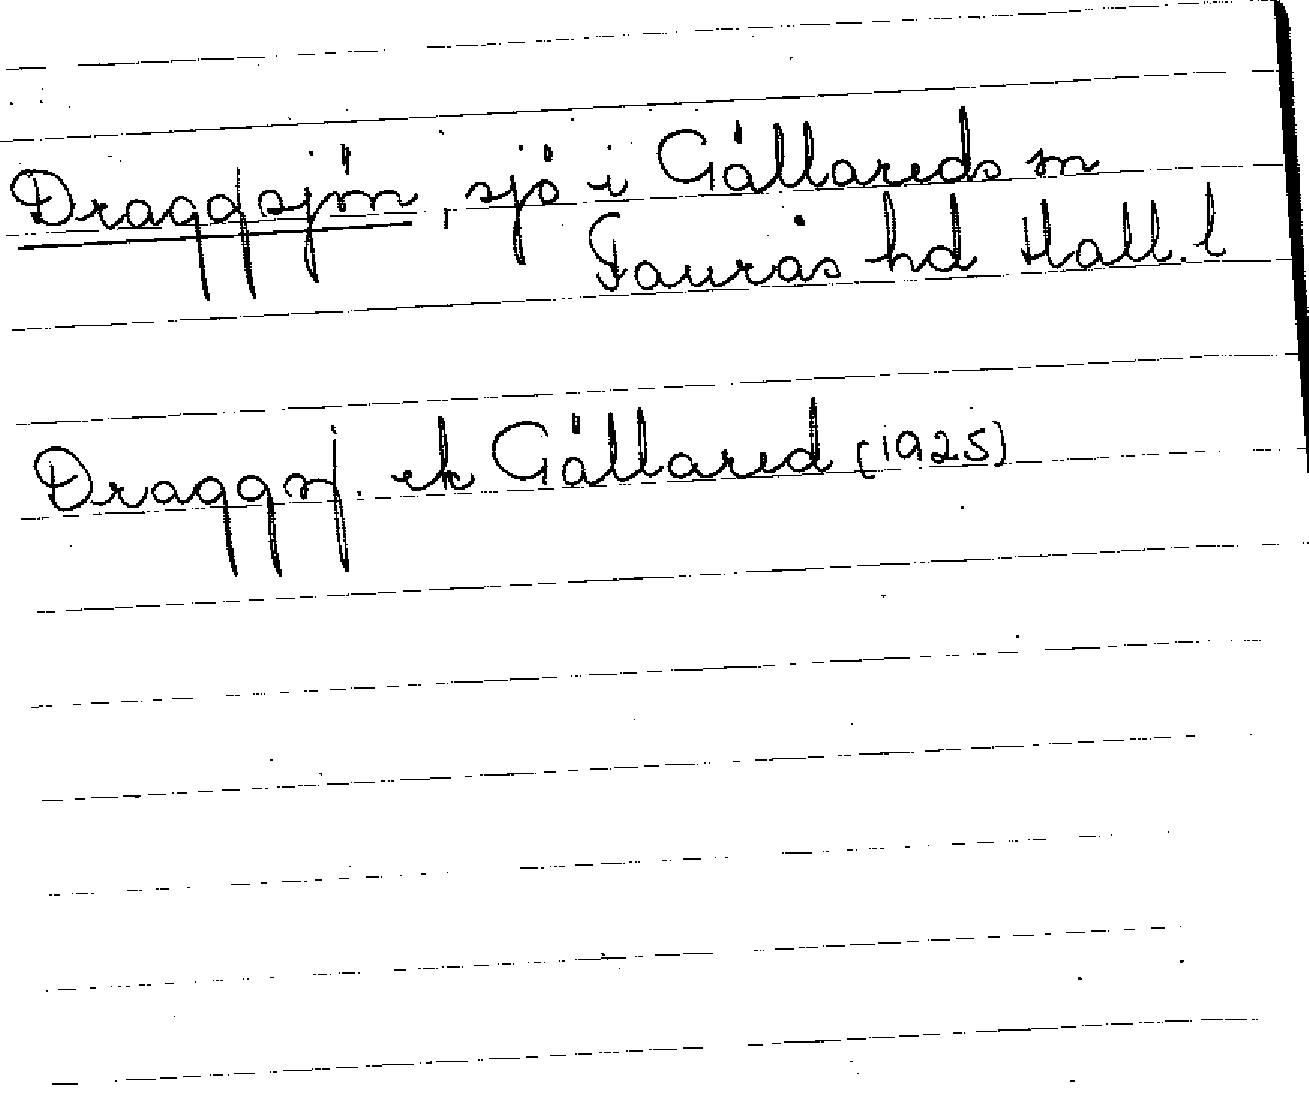 Draggsjön, sjö i Gällareds sn
Faurås hd Hall. l
Draggsj. ek Gällared (1925)